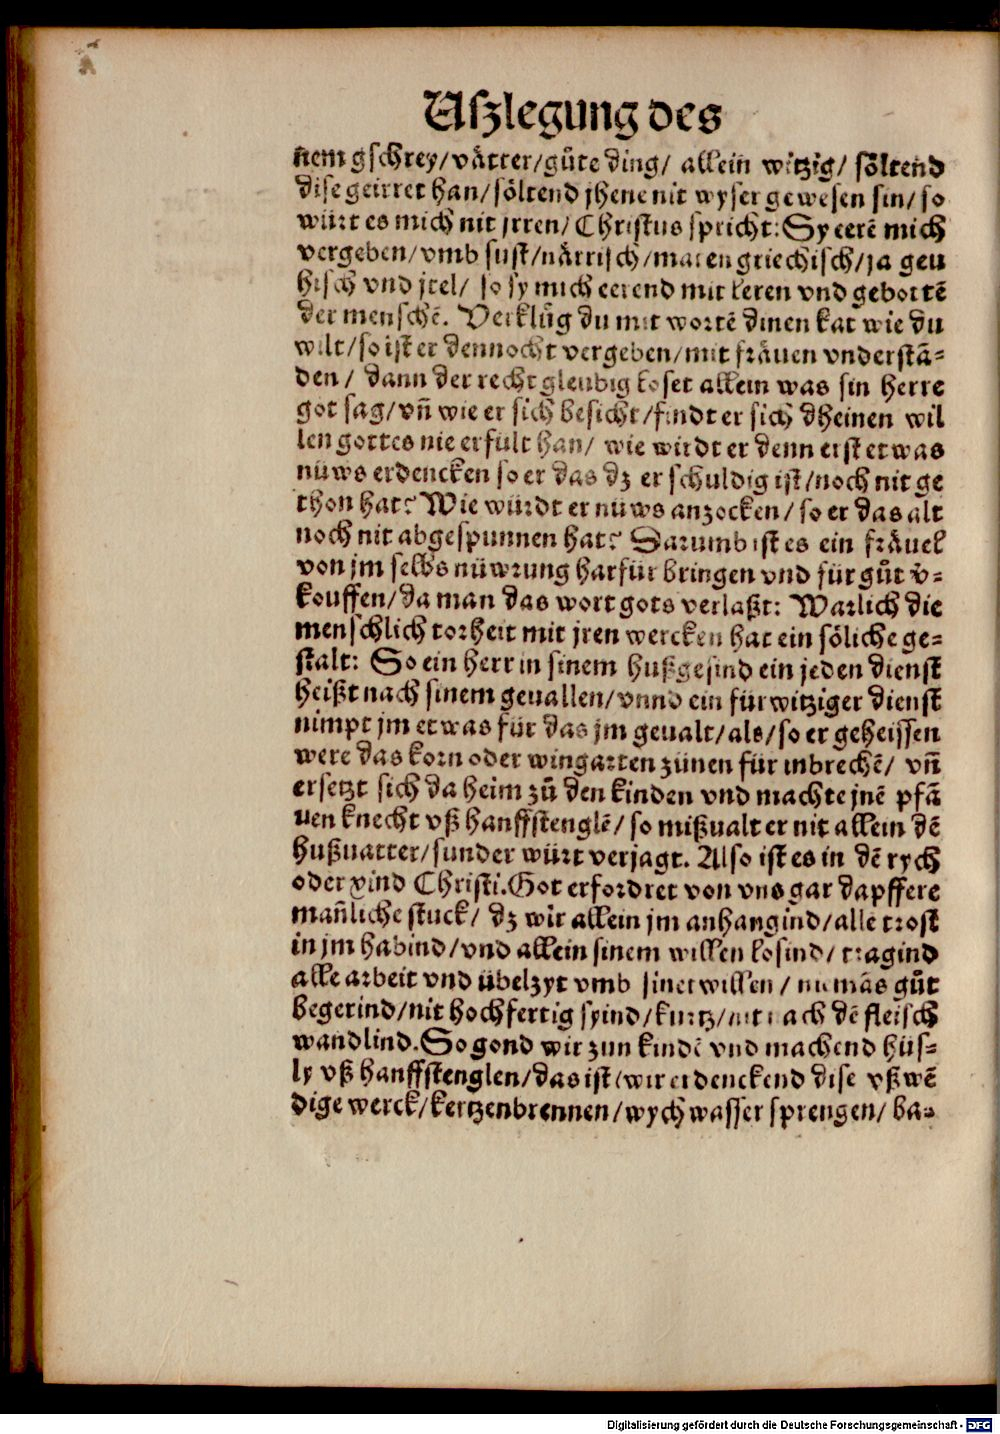 Uſzlegung des
nem gſchrey/vaͤtter/guͤte ding/ allein witzig/ ſoͤltend
diſe geirret han/ſoͤltend jhene nit wyſer geweſen ſin/ſo
wuͤrt es mich nit jrren/ Chriſtus ſpricht: Sy eerẽ mich
vergeben/vmb ſuſt/naͤrriſch/maten griechiſch/ja geu
hiſch vnd jtel/ ſo ſy mich eerend mit leren vnd gebottẽ
der menſchẽ. Verkluͤg du mit wortẽ dinen kat wie du
wilt/ſo iſt er dennocht vergeben/mit fraͤuen vnderſtã-
den/ dann der recht gleubig loſet allein was ſin herre
got ſag/vñ wie er ſich beſicht/findt er ſich dheinen wil
len gottes nie erfült han/ wie wirdt er denn erſt etwas
nüws erdencken ſo er das dz er ſchuldig iſt/noch nit ge
thon hat? Wie würdt er nüws anzocken/ſo er das alt
noch nit abgeſpunnen hat? Darumb iſt es ein fraͤuel
von jm ſelbs nüwrung harfür bringen vnd für guͤt v̈-
kouffen/da man das wort gots verlaßt: Warlich die
menſchlich torheit mit jren wercken hat ein ſoͤliche ge-
ſtalt: So ein herr in ſinem hußgeſind ein jeden dienſt
heißt nach ſinem geuallen/vnnd ein fürwitziger dienſt
nimpt jm etwas für das jm geualt/als/ſo er geheiſſen
were das korn oder wingarten zünen für inbrechẽ/ vñ
erſetzt ſich da heim zuͤ den kinden vnd machte jnẽ pfã
uen knecht vß hanffſtenglẽ/ſo mißualt er nit allein dẽ
hußuatter/ſunder würt verjagt. Alſo iſt es in dẽ rych
oder gſind Chriſti. Got erfordret von vns gar dapffere
mañliche ſtuck/ dz wir allein jm anhangind/alle troſt
in jm habind/vnd allein ſinem willen loſind/ tragind
alle arbeit vnd übelzyt vmb ſinet willen/ niemãs guͤt
begerind/nit hochfertig ſyind/kurtz/nit nach dẽ fleiſch
wandlind. So gond wir zun kindẽ vnd machend hüſ-
ly vß hanffſtenglen/das iſt/wir erdenckend diſe vßwẽ
dige werck/kertzenbrennen/wychwaſſer ſprengen/ba-
Digitalisierung gefördert durch die Deutsche Forschungsgemeinschaft - DFG